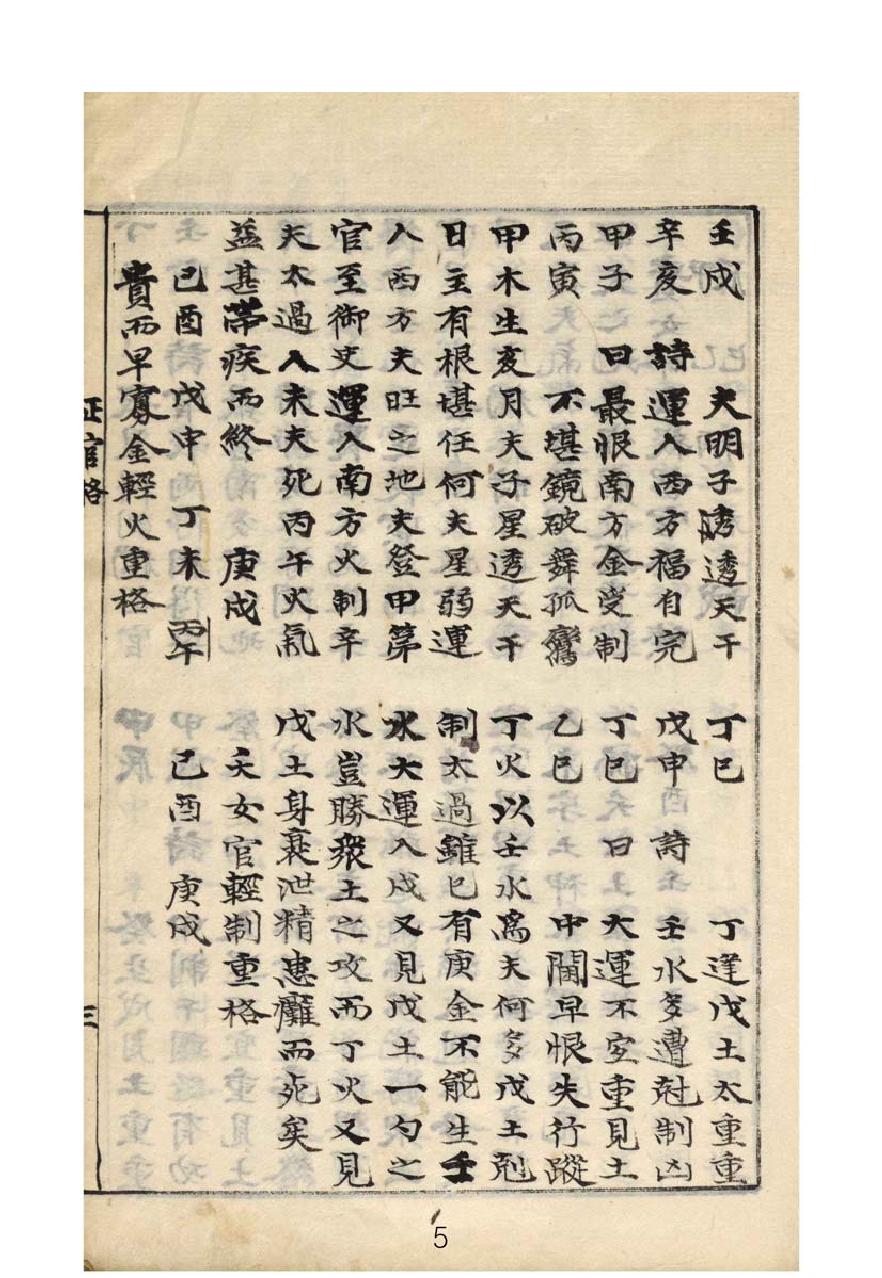 壬戌 夫明子透天干
辛亥 詩 運入西方福自完
甲子 曰 最恨南方金受制
丙寅 不堪鏡破舞孤鸞
甲木生亥月夫子星透天干
日主有根堪任何夫星弱運
入西方夫旺之地夫登甲第
官至御史運入南方火制辛
夫太過入未夫死丙午火氣
益甚帶疾而終 庚戌
己酉 戊申 丁未 丙午
貴而早寡金輕火重格
丁巳 丁逢戊土太重重
戊申 詩 壬水多遭尅制凶
丁巳 曰 大運不宜重見土
乙巳 中閨早恨失行蹤
丁火以壬水爲夫何多戊土剋
制太過雖巳有庚金不能生壬
水大運入戌又見戊土一勺之
水豈勝衆土之攻而丁火又見
戊土身衰泄精患癰而死矣
夭女官輕制重格
己酉 庚戌
正官格 三
5